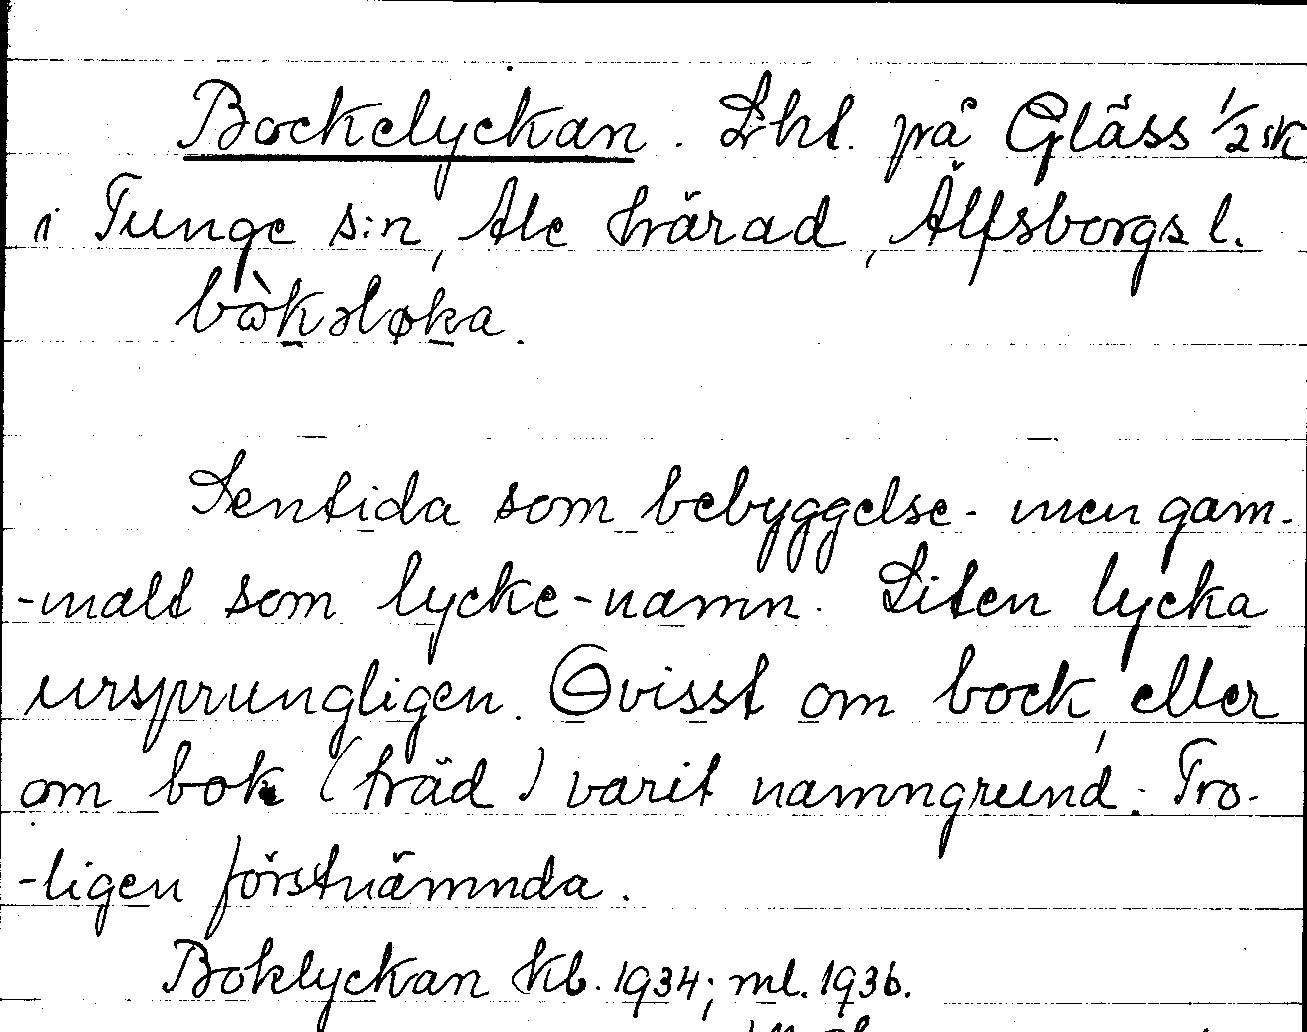 Bockelyckan. Lht. på Gläss 1/2 sk
i Tunge s:n, Ale härad, Älfsborgs l.
bὼkəløka.
Sentida som bebyggelse- men gam-
-malt som lycke-namn. Liten lycka
ursprungligen. Ovisst om bock, eller
om bok (träd) varit namngrund. Tro-
-ligen förstnämnda.
Boklyckan Kb. 1934; ml. 1936.